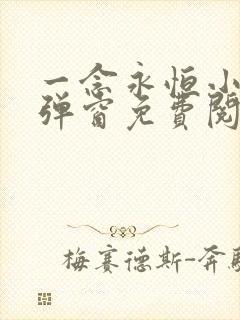 一念永恒小
弹窗免費閱
梅赛德斯-奔馳